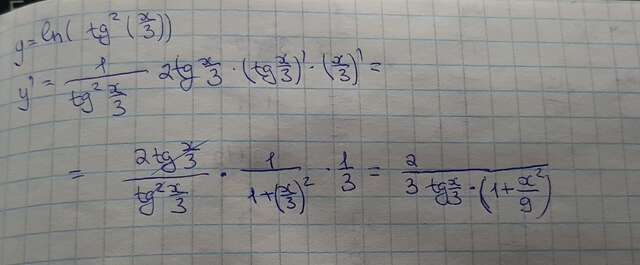 y = ln( tg² (x/3))
y' = 1/(tg² x/3) 2tg x/3 · (tg x/3)' · (x/3)' =
= (2tg x/3)/(tg² x/3) · 1/(1+(x/3)²) · 1/3 = 2/(3 tg x/3 · (1+x²/9))